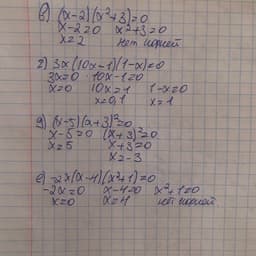 в) (x-2)(x²+3)=0
x-2=0 x²+3=0
x=2 нет корней
г) 3x(10x-1)(1-x)=0
3x=0 10x-1=0
x=0 10x=1 1-x=0
x=0,1 x=1
д) (x-5)(x+3)²=0
x-5=0 (x+3)²=0
x=5 x+3=0
x=-3
е) -2x(x-4)(x²+1)=0
-2x=0 x-4=0 x²+1=0
x=0 x=4 нет корней